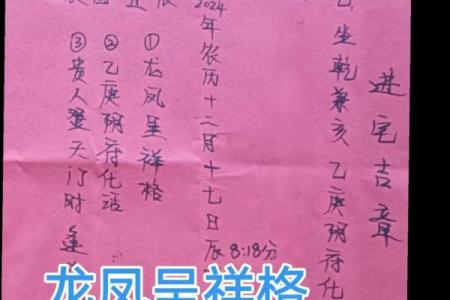 进宅吉章
坐乾兼亥 乙庚阴府化
2024年农历十二月十七日辰8:18分
①龙凤呈祥格
②乙庚阴府化活
③贵人登天门时
龙凤呈祥格